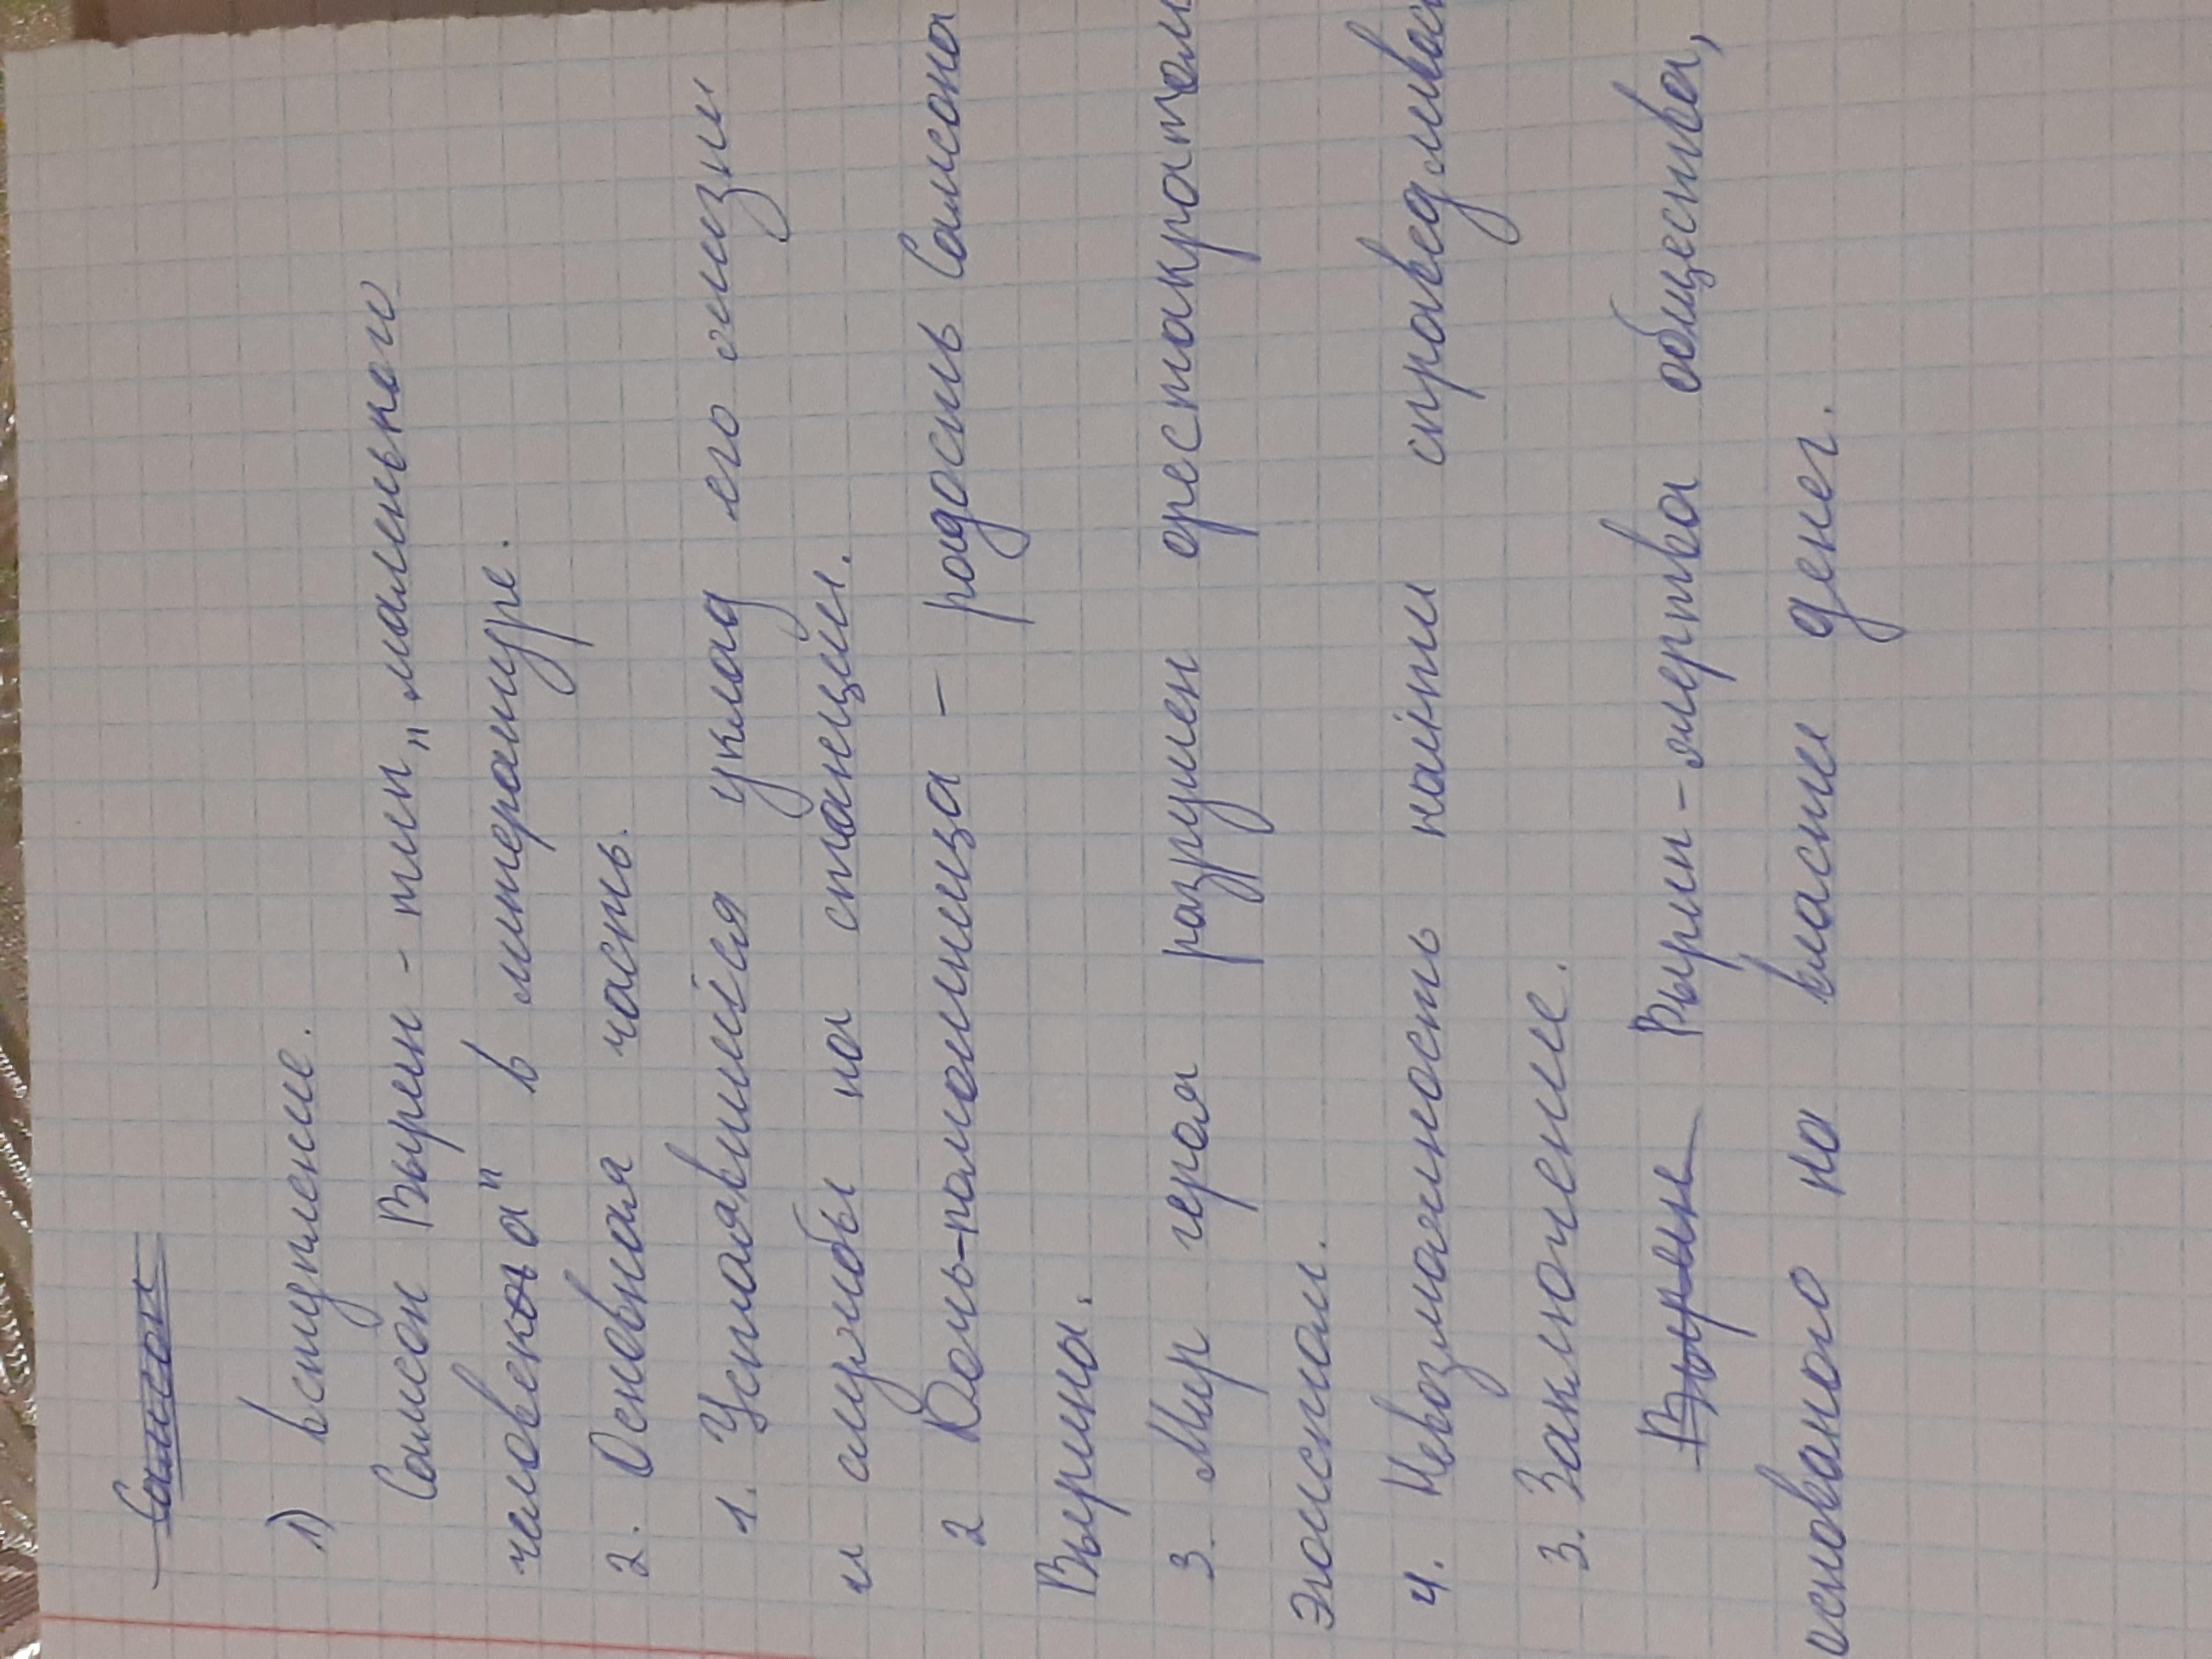 Самсон
1) вступление.
Самсон Вырин - тип „маленького
человека" в литературе.
2. Основная часть.
1. Устоявшийся уклад его жизни
и службы на станции.
2 Дочь-помошница - радость Самсона
Вырина.
3. Мир героя разрушен
Эгоистом.
4. Невозможность найти
3. Заключение.
Вырин Вырин - жертва общества,
основаного на власти денег.